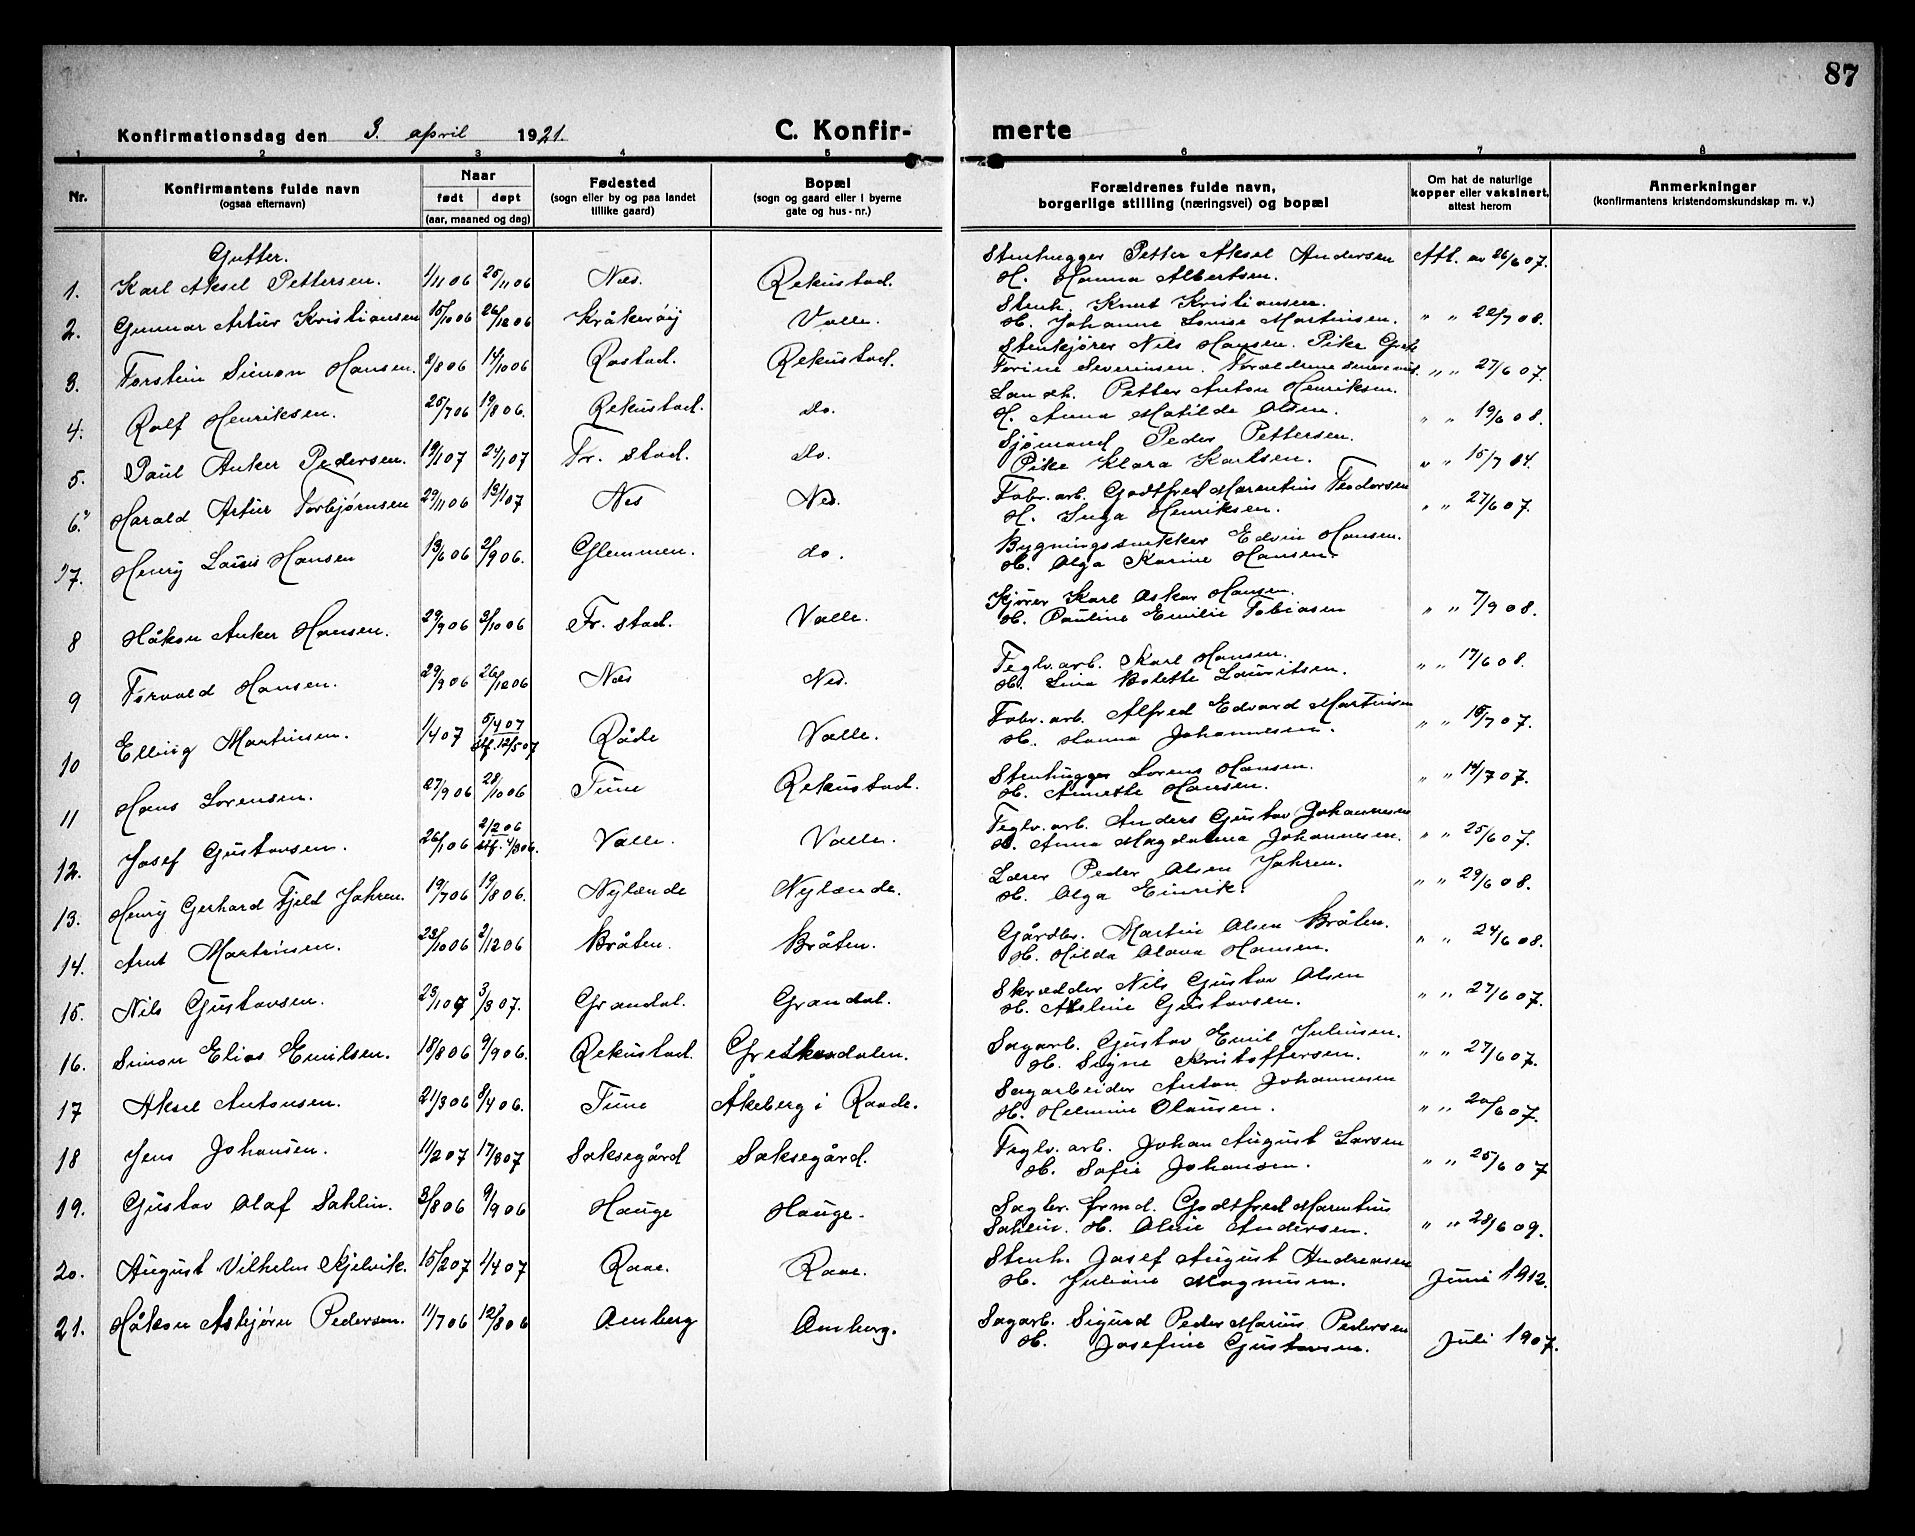 87
Konfirmationsdag den 3. april 1921.
C. Konfirmerte
1 2 3 4 5 6 7 8
Nr. Konfirmantens fulde navn (ogsaa efternavn) Naar født døpt (aar, maaned og dag) Fødested (sogn eller by og paa landet tillike gaard) Bopæl (sogn og gaard eller i byerne gate og hus-nr.) Forældrenes fulde navn, borgerlige stilling (næringsvei) og bopæl Om hat de naturlige kopper eller vaksinert, attest herom Anmerkninger (konfirmantens kristendomskundskap m. v.)
Gutter.
1. Karl Aksel Pettersen. 1/11 06 25/11 06 Næs. Rekustad. Stenhugger Petter Aksel Andersen H. Hanna Albertsen. Att. av 26/6 07.
2. Gunnar Artur Kristiansen 15/10 06 26/12 06 Kråkerøy Valle. Stenh. Knut Kristiansen. H. Johanne Lovise Martinsen. " " 22/7 08.
3. Torstein Simon Hansen. 2/8 06 14/10 06 Rostad. Rekustad. Stenkjører Nils Hansen. Pike Torine Severinsen. Forældrene senere " " 27/6 07.
4. Rolf Henriksen. 25/7 06 19/8 06. Rekustad. do. Petter Anton Henriksen. H. Anna Matilde Olsen. " " 19/6 08.
5. Paul Anker Pedersen. 19/1 07 24/1 07 Fr. stad. do. Sjømand Peder Pettersen. Pike Klara Karlsen. " " 15/7 04.
6. Harald Artur Torbjørnsen 29/11 06 13/1 07 Nes Nes. Fabr. arb. Godtfred Marentius Teodorsen H. Inga Henriksen. " " 27/6 07.
7. Henry Louis Hansen 13/6 06 2/9 06. Glemmen. do. Bygningssnekker Edvin Hansen. H. Olga Karine Hansen.
8 Håkon Anker Hansen. 29/9 06 3/10 06 Fr. stad. Valle. Kjører Karl Oskar Hansen. H. Pauline Emilie Tobiasen " " 7/9 08.
9 Torvald Hansen. 29/9 06 26/12 06 Næs Nes. Teglv. arb. Karl Hansen. H. Lina Bolette Lauritsen. " " 17/6 08.
10 Elling Martinsen. 1/4 07 5/4 07 stf. 12/5 07 Råde Valle. Fabr. arb. Alfred Edvard Martinsen H. Hanna Johannesen. " " 15/7 07.
11 Hans Lorensen. 27/9 06 28/10 06 Tune Rekustad. Stenhugger Lorens Hansen. H. Annette Hansen. " " 14/7 07.
12. Josef Gustavsen. 26/1 06 2/2 06 stf. 4/3 06. Valle. Valle. Teglv. arb. Anders Gustav Johannesen H. Anna Magdalena Johannesen. " " 25/6 07.
13. Henry Gerhard Fjeld Jahren. 19/7 06 19/8 06. Nylænde Nylænde. Lærer Peder Olsen Jahren. H. Olga Einrik. " " 29/6 08.
14. Arnt Martinsen. 23/10 06 2/12 06 Bråten. Bråten. Gårdbr. Martin Olsen Bråten. H. Hilda Olava Hansen. " " 24/6 08.
15. Nils Gustavsen. 23/1 07 3/3 07. Grandal. Grandal. Skrædder Nils Gustav Olsen H. Gustavsen. " " 27/6 07.
16. Simon Elias Emilsen. 18/8 06 9/9 06. Rekustad. Sagarb. Gustav Emil Juliusen. H. Signe Kristoffersen. " " 27/6 07.
17 Aksel Antonsen. 21/3 06 8/4 06. Tune Åkeberg i Raade. Sagarbeider Anton Johannesen H. Helmine Olausen. " " 20/6 07.
18 Jens Johansen. 11/2 07 17/3 07 Saksegård Saksegård. Teglv. arb. Johan August Larsen H. Sofie Johansen. " " 25/6 07
19. Gustav Olaf Sahlin. 3/8 06 9/9 06 Hauge Hauge. Sagbr. frmd. Godtfred Marentius Sahlin. H. Oline Andersen. " " 28/6 09.
20. August Vilhelm Skjelvik. 15/2 07 1/4 07 Raae. Raae. Stenh. Josef August Andreasen H. Juliane Magnusen. Juni 1912.
21. Håkon Asbjørn Pedersen. 11/7 06 12/8 06 Omberg Omberg. Sagarb. Sigurd Peder Marius Pedersen H. Josefine Gustavsen. Juli 1907.